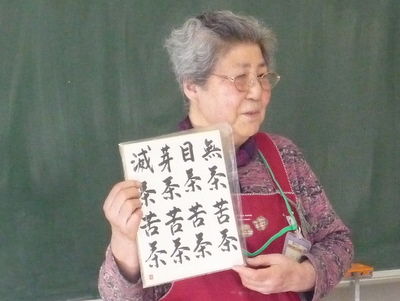 無茶苦茶
目茶苦茶
芽茶苦茶
滅茶苦茶